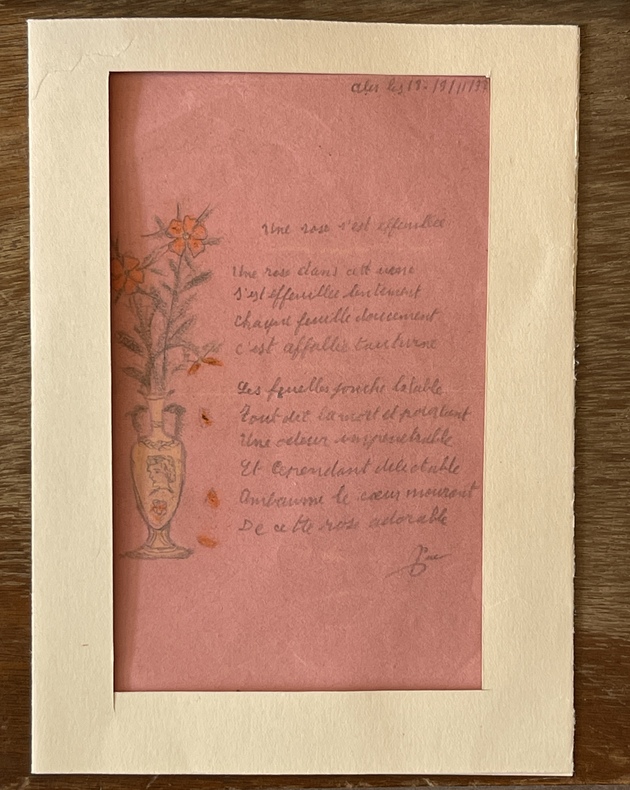 Une rose s'est effeuillée
Une rose dans cett
S'est effeuillée lentement
Chaque feuille doucement
c'est affaiblée
Les jonche la table
Tout dit la mort et pourtant
Une odeur impenetrable
Et Cependant delectable
Ambaume le cœur mourant
De cette rose adorable